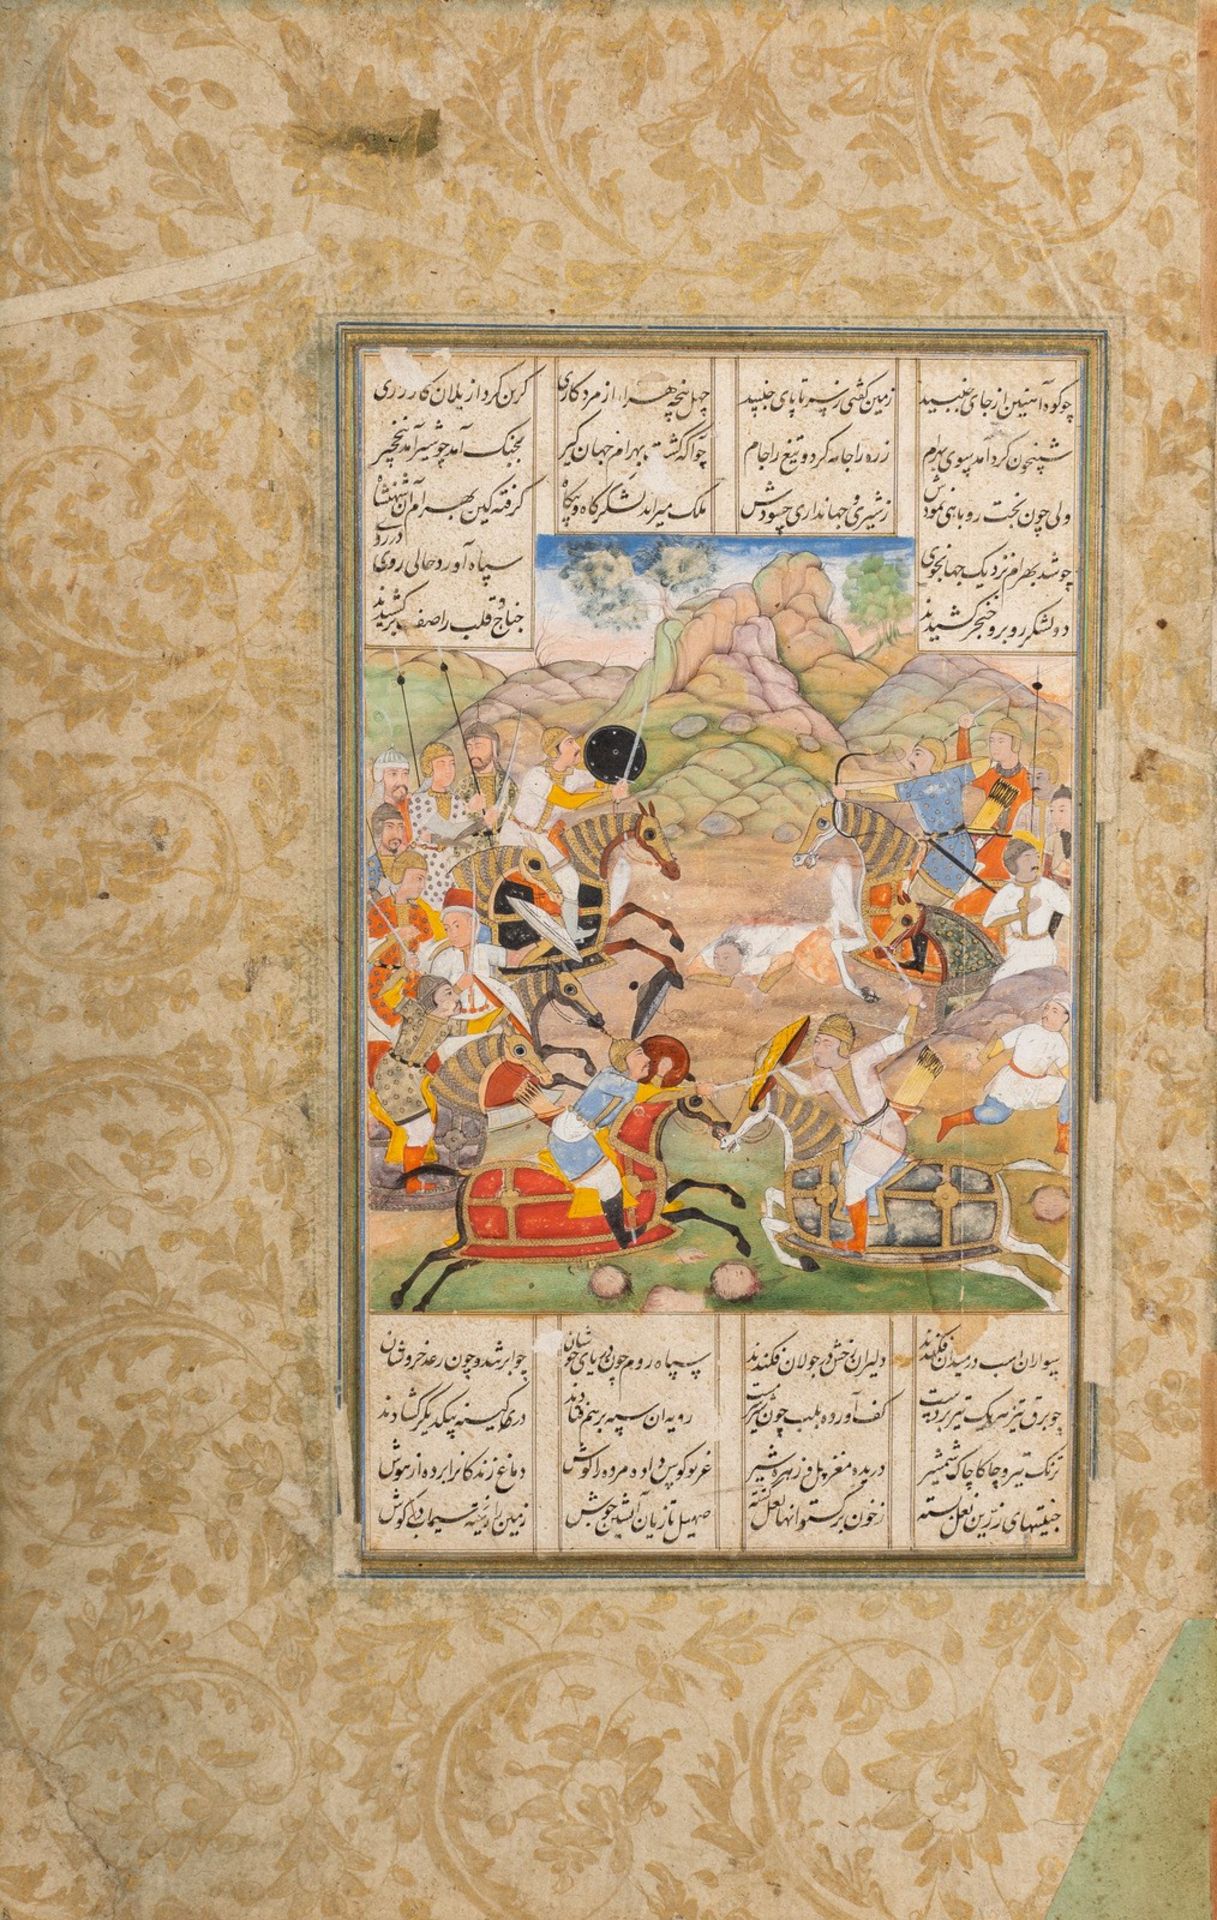 چو کوه آهنین از جای جنبید زمین گفتی ز سر تا پای جنبید چهل پنجه هزار از مرد کاری گزین کرد از یلان کارزاری
شبیخون کرد آمد بسوی بهرام زره را جامه کرد و تیغ را جام چو آگه گشت بهرام جهان گیر بجنگ آمد چو شیر آمد بنخچیر
ولی چون بخت روباهی نمودش ز شیری و جهانداری چه سودش ملک میراند لشکرگاه و بیگاه گرفته کین بهرام آن شهنشاه
چو شد بهرام نزدیک جهانجوی سپاه آورد حالی روی در روی
دو لشکر روبرو خنجر کشیدند جناح و قلب را صف برکشیدند
سواران اسب در میدان فکندند دلیران رخش در جولان فکندند سپاه روم چون دریای جوشان چو ابر شد و چون رعد خروشان
چو برق تیز هر یک تیر بر دست کف آورده بلب چون شیر سرمست سپه برهم فتادند در کینه بیکدیگر گشادند
ترنگ تیر و چاکاچاک شمشیر دریده مغز پیل و زهره شیر غریو کوس داده مرده را گوش دماغ زندگان را برده از هوش
جنیبتهای زرین نعل بسته ز خون برگستوانها لعل گشته صهیل تازیان آتشین جوش زمین را ریخته سیماب در گوش